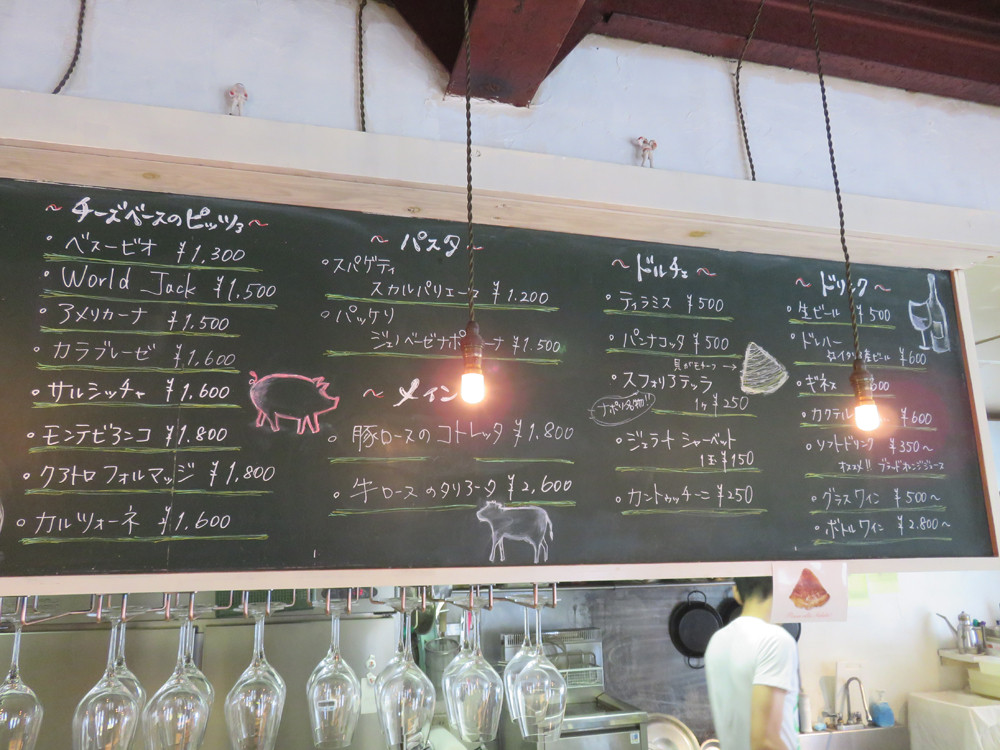 ～チーズベースのピッツァ～
・ベスービオ ¥1,300
・World Jack ¥1,500
・アメリカーナ ¥1,500
・カラブレーゼ ¥1,600
・サルシッチャ ¥1,600
・モンテビアンコ ¥1,800
・クアトロフォルマッジ ¥1,800
・カルツォーネ ¥1,600
～パスタ～
・スパゲティ
スカルパリエーラ ¥1,200
・パッケリ
ジェノベーゼナポ ーナ ¥1,500
～メイン
・豚ロースのコトレッタ ¥1,800
・牛ロースのタリアータ ¥2,600
～ドルチェ～
・ティラミス ¥500
・パンナコッタ ¥500
貝がモチーフ→
・スフォリアテッラ
ナポリ名物!!
1ヶ ¥250
・ジェラート シャーベット
1玉 ¥150
・カントゥッチーニ ¥250
～ドリンク～
・生ビール ¥500
・ドレハー
イタリア産ビール ¥600
・ギネス 600
・カクテル ¥600
・ソフトドリンク ¥350～
オススメ!! ブラッドオレンジジュース
・グラスワイン ¥500～
・ボトルワイン ¥2,800～